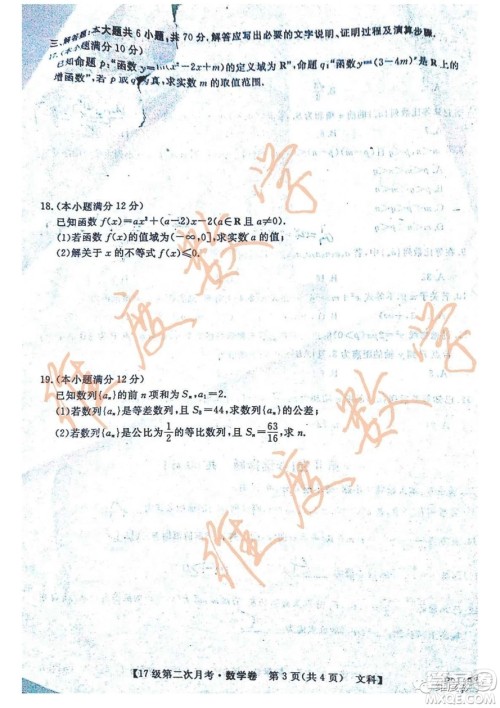 三、解答题:本大题共 6 小题,共 70 分,解答应写出必要的文字说明、证明过程及演算步骤.
17.(本小题满分 10 分)
已知命题 p:“函数 y= x²-2x+m)的定义域为 R”,命题 q:“函数 y= (3-4m)ˣ 是 R 上的
增函数”,若 p 为真,求实数 m 的取值范围.
18.(本小题满分 12 分)
已知函数 f(x)=ax²+(a-2)x-2(a∈R 且 a≠0).
(1)若函数 f(x)的值域为(-∞,0],求实数 a 的值;
(2)解关于 x 的不等式 f(x)≤0.
19.(本小题满分 12 分)
已知数列{aₙ}的前 n 项和为 Sₙ,a₁=2.
(1)若数列{aₙ}是等差数列,且 S₈=44,求数列{aₙ}的公差;
(2)若数列{aₙ}是公比为1/2的等比数列,且 Sₙ=63/16,求 n.
维度数学
维度数学
【17 级第二次月考·数学卷 第 3 页(共 4 页) 文科】